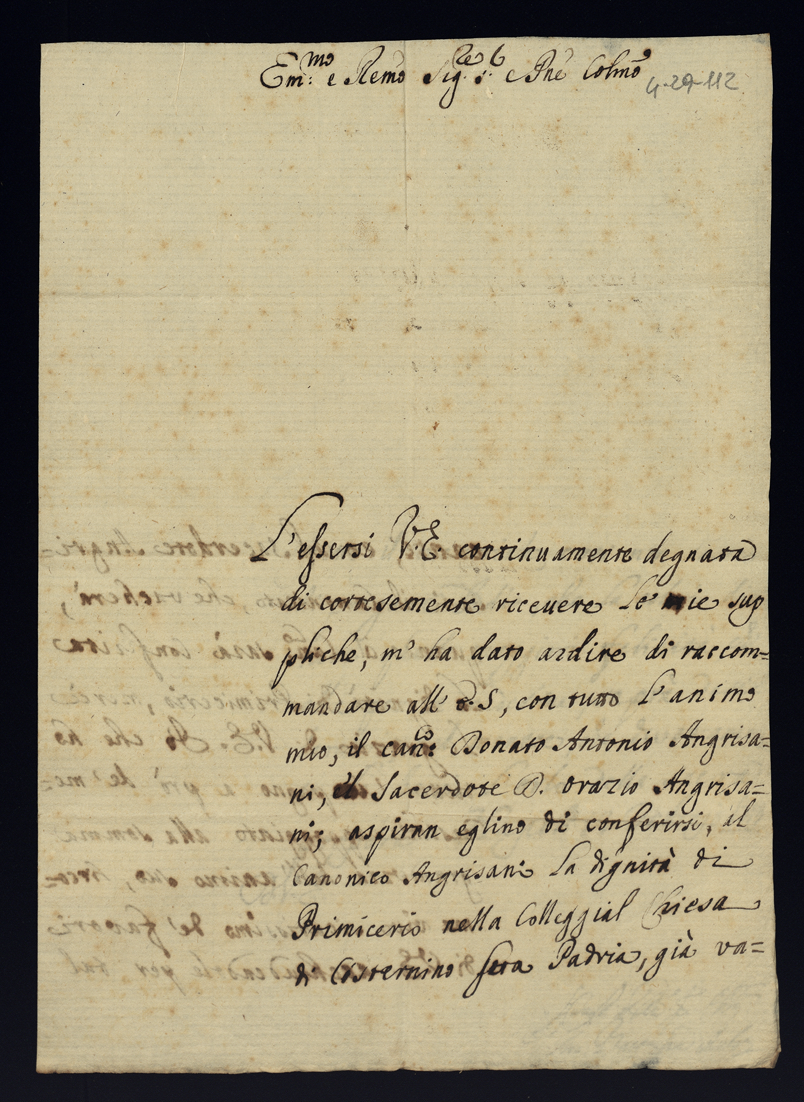 Em.mo e Remo Sig.re e Pne Colmo
4-29-112
L'essersi V.E. continuamente degnata
di cortesemente riceuere le mie sup
pliche, m'ha dato ardire di raccom=
mandare all' S, con tutto l'animo
mio, il can.co Donato Antonio Angrisa=
ni, il Sacerdote D. Orazio Angrisa=
ni; aspiran eglino di conferirsi, al
Canonico Angrisani la dignità di
Primicerio nella Colleggial Chiesa
di Cisternino sera Padria, già va=